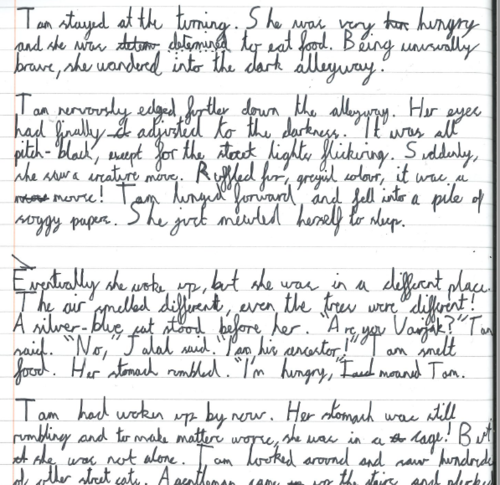 Tam stayed at the turning. She was very hungry
and she was detemined to eat food. Being unusually
brave, she wandered into the dark alleyway.
Tam nervously edged further down the alleyway. Her eyes
had finally adjusted to the darkness. It was all
pitch-black, except for the street lights flickiring. Suddenly,
she saw a creature move. Ruffled fur, greyish colour, it was a
mouse! Tam lunged forward, and fell into a pile of
soggy paper. She just mewled herself to sleep.
Eventually she woke up, but she was in a different place.
The air smelled different, even the trees were different!
A silver-blue cat stood before her. "Are you Varjak?" Tam
said. "No," Jalal said. "I am his ancestor!" Tam smelt
food. Her stomach rumbled. "I'm hungry," moaned Tam.
Tam had woken up by now. Her stomach was still
rumbling and to make matters worse, she was in a cage! But
she was not alone. Tam looked around and saw hundreds
of other street cats. A gentleman came up the stairs and